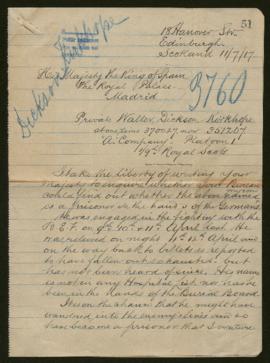 51
18 Hanover Str.
Edinburgh
Scotland 11/7/17.
His Majesty the King of Spain
The Royal Palace
Madrid
3760
Dickson Kirkhope
Private Walter Dickson Kirkhope
"A" Company. Platoon 1
Royal Scots
I take the liberty of writing your
Majesty to enquire whether your Bureau
could find out whether the above named
is a Prisoner in the hands of the Germans
He was engaged in the fighting with the
B.E.F. on 9th 10th & 11th April last. He
was relieved on night 11th 12th April and
on the way back to billets is reported
to have fallen out exhausted but
has not been heard of since. His name
is not in any Hospital list nor has he
been in the hands of the Burial Board.
It is on the chance that he might have
wandered into the enemy's lines and so
has become a prisoner that I venture